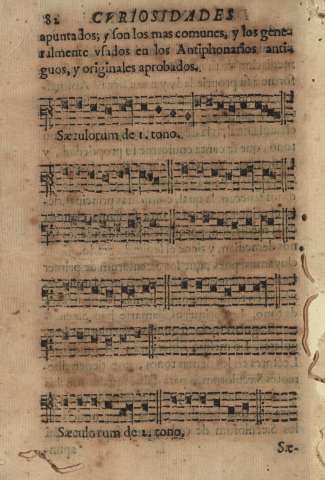 82 CVRIOSIDADES
apuntados; y son los mas comunes, y los gene-
ralmente vsados en los Antiphonarios anti-
guos, y originales aprobados.
Sæculorum de 1. tono.
Sæculorum de 2. tono.
Sæ-